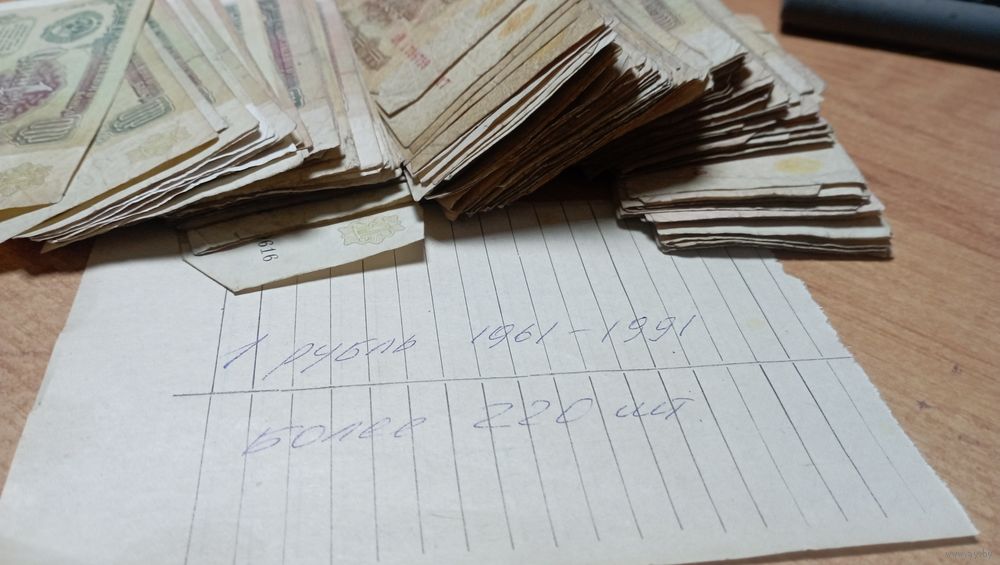 616
1 рубль 1961-1991
Более 220 шт.
www.ay.by